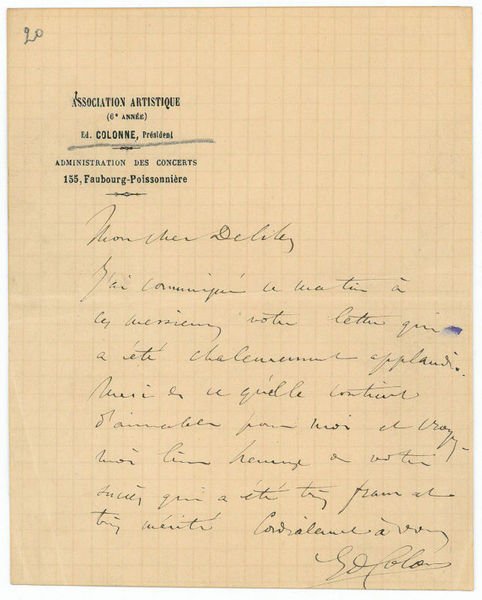 20
ASSOCIATION ARTISTIQUE
(6e ANNÉE)
Ed. COLONNE, Président
ADMINISTRATION DES CONCERTS
155, Faubourg-Poissonnière
Mon cher Delibes
J'ai communiqué ce matin à
ces messieurs votre lettre qui
a été chaleureusement applaudie.
Merci de ce qu'elle contient
d'aimable pour moi et croyez-
moi bien heureux de votre
succès qui a été très franc et
très mérité Cordialement à vous
Ed Colonne